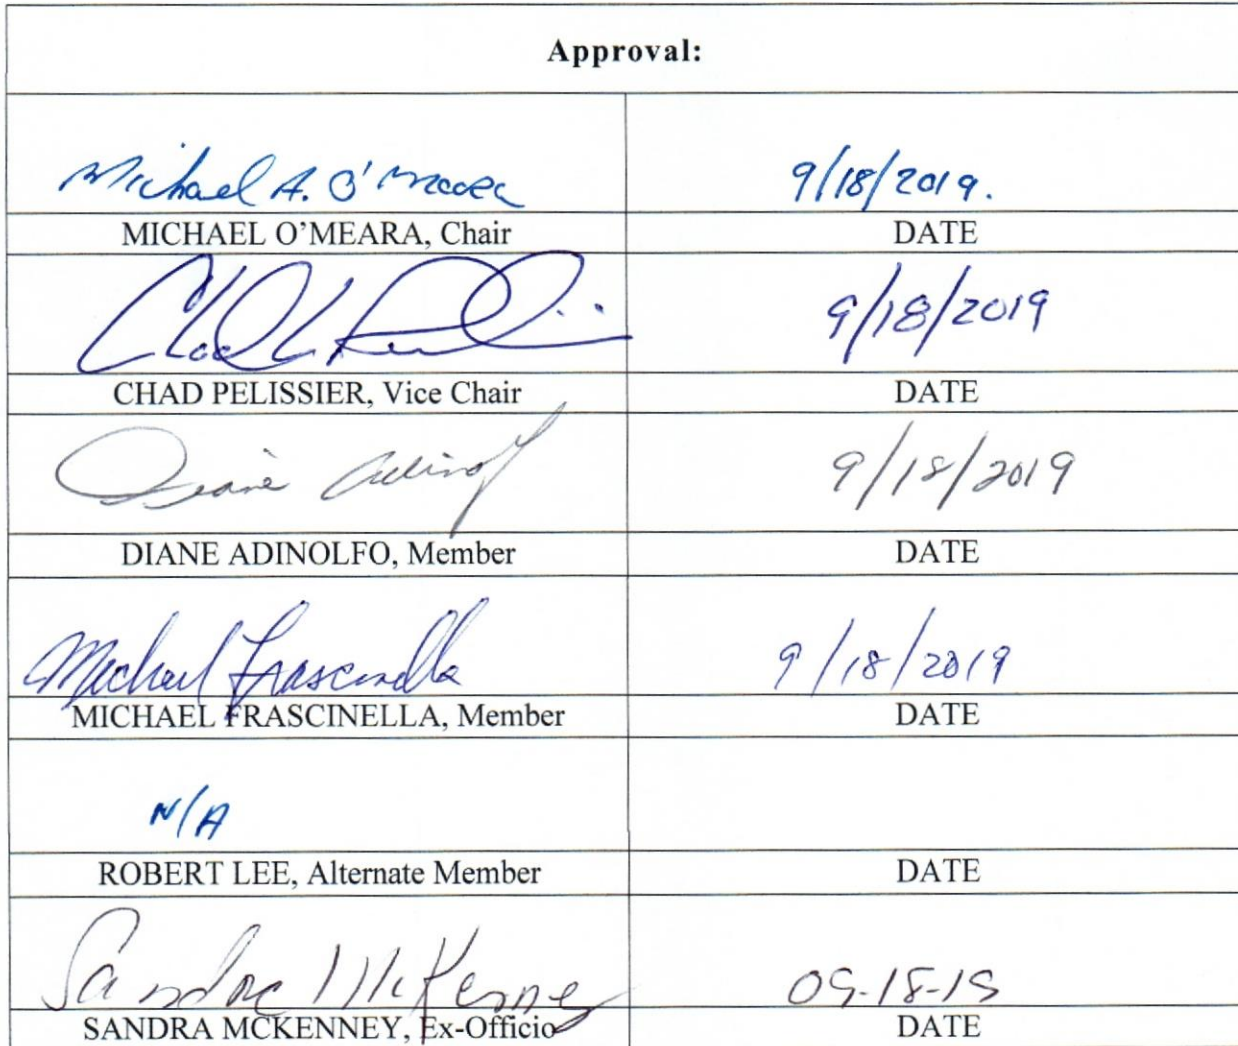 Approval:
Michael A. O'Meara 9/18/2019.
MICHAEL O'MEARA, Chair DATE
9/18/2019
CHAD PELISSIER, Vice Chair DATE
Diane Adinolf 9/18/2019
DIANE ADINOLFO, Member DATE
Michael Frascinella 9/18/2019
MICHAEL FRASCINELLA, Member DATE
N/A
ROBERT LEE, Alternate Member DATE
Sandra McKenney 09-18-19
SANDRA MCKENNEY, Ex-Officio DATE